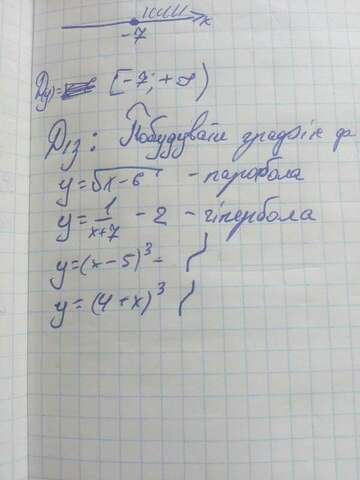 x
-7
D(y)= [-7; +∞)
D/з: Побудувати графік ф
y=√x-6 - парабола
y=1/x+7 - 2 - гіпербола
y=(x-5)³-
y=(4+x)³